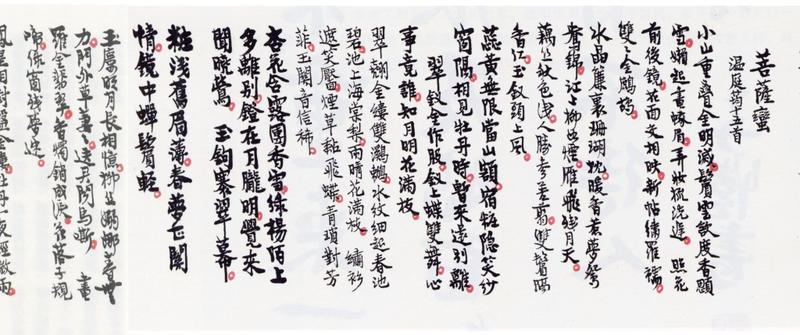 菩薩蠻
温庭筠十五首
小山重疊金明滅鬢雲欲度香顋
雪嬾起畫蛾眉弄妝梳洗遲 照花
前後鏡花面交相映新帖繡羅襦
雙雙金鷓鴣
水晶簾裏珊瑚枕暖香惹夢鴛
鴦錦江上柳如煙雁飛殘月天
藕絲秋色淺人勝參差翦雙鬢隔
香紅玉釵頭上風
蕊黃無限當山額宿粧隱笑紗
窗隔相見牡丹時暫來還別離
翠釵金作股釵上蝶雙舞心
事竟誰知月明花滿枝
翠翹金縷雙鸂鶒水紋細起春池
碧池上海棠梨雨晴花滿枝 繡衫
遮笑靨煙草黏飛蝶青瑣對芳
菲玉關音信稀
杏花含露團香雪綠楊陌上
多離別燈在月朧明覺來
聞曉鶯 玉鉤褰翠幕
粧淺舊眉薄春夢正關
情鏡中蟬鬢輕
玉樓明月長相憶柳絲嬝娜春無
力門外草萋萋送君聞馬嘶 畫
羅金翡翠香燭銷成淚花落子規
啼綠窗殘夢迷
鳳凰相對盤金縷牡丹一夜經微雨